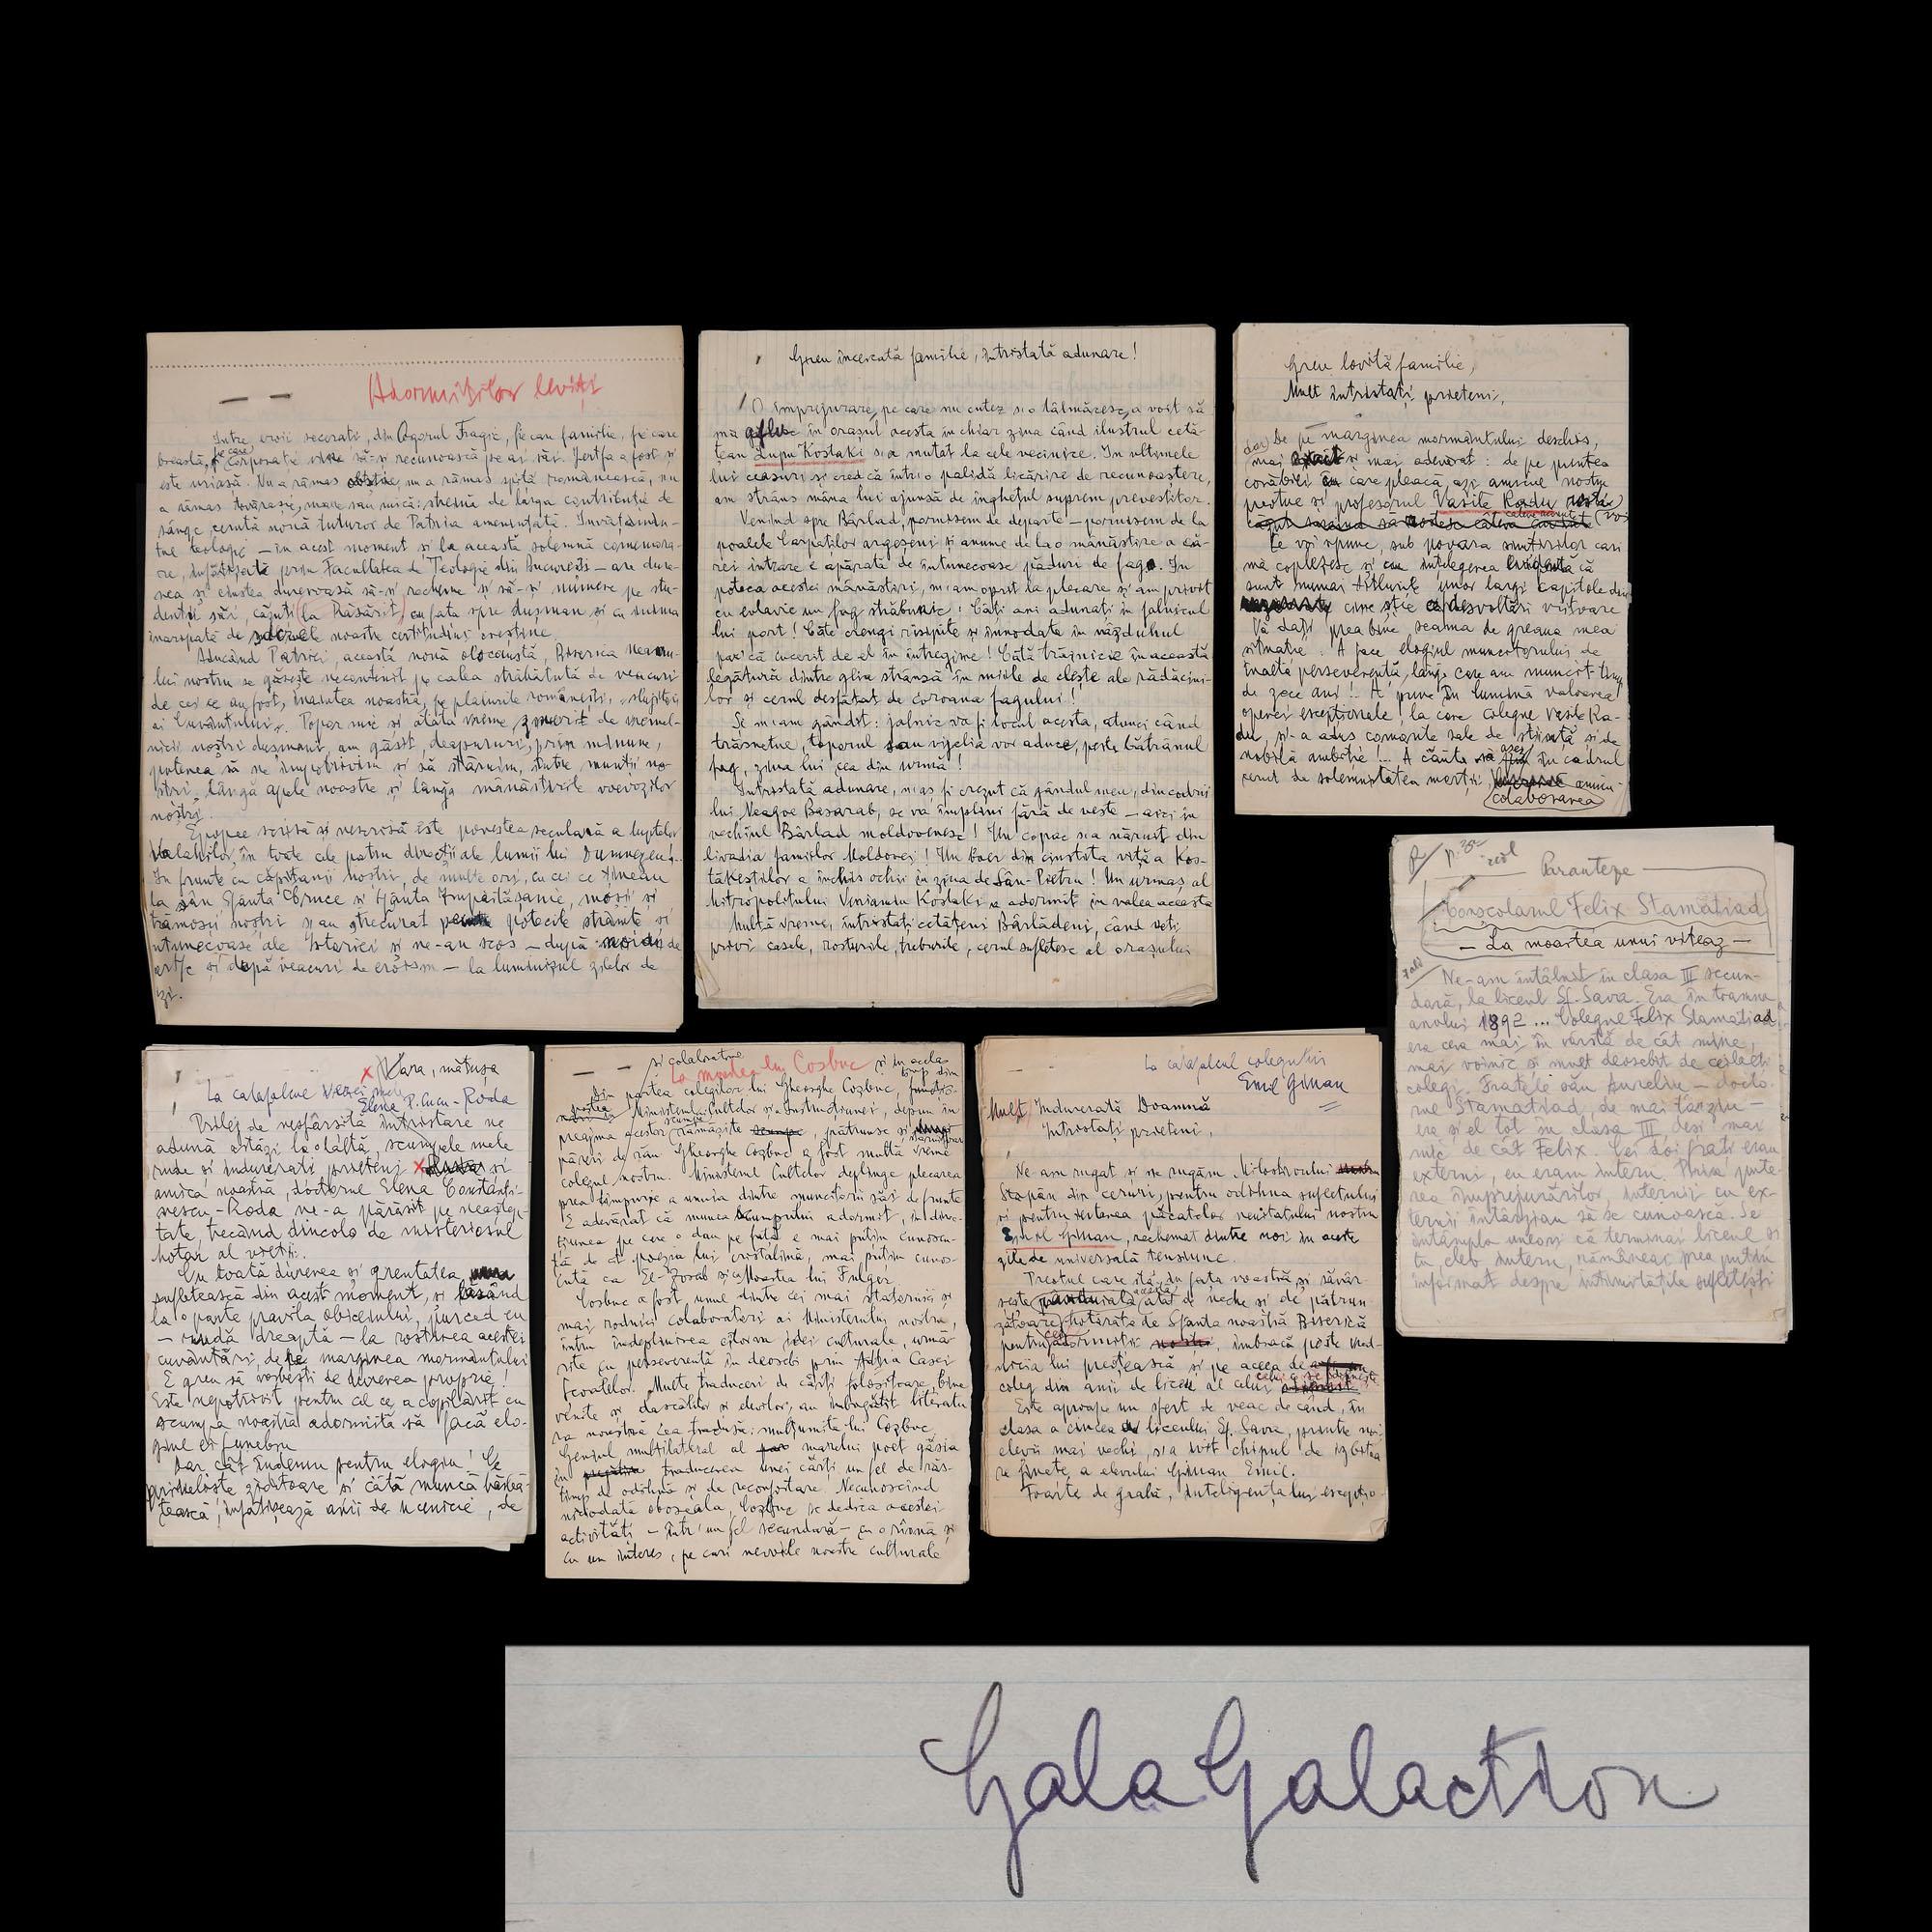 Adormiților leviți
Între eroii secerați, din Ogorul Tragic, fiecare familie, fiecare
breaslă, fie care corporație vine să-și recunoască pe ai săi. Jertfa a fost și
este uriașă. Nu a rămas obște, nu a rămas spiță românească, nu
a rămas tovărășie, mare sau mică: străină de larga contribuție de
sânge, cerută nouă tuturor de Patria amenințată. Învățămân-
tul teologic — în acest moment și la această solemnă comemora-
re, înfățișată prin Facultatea de Teologie din București — are dure-
rea și cinstea dureroasă să-și recheme și să-și numere pe stu-
denții săi, căzuți la Răsărit, cu fața spre dușman și cu inima
înaripată de noastre certitudini creștine.
Aducând Patriei, această nouă olocaustă, Biserica Neamu-
lui nostru se găsește necontenit pe calea străbătută de veacuri
de cei ce au fost, înaintea noastră, pe plaiurile românești, „slujitori
ai Cuvântului". Popor mic și atâta vreme de vremel-
nicii noștri dușmani, am găsit, deapururi, prin minune,
puterea să ne împotrivim și să stăruim, între munții no-
ștri, lângă apele noastre și lângă mănăstirile voevozilor
noștri.
Epopee scrisă și nescrisă este povestea seculară a luptelor
Valahilor, în toate cele patru direcții ale lumii lui Dumnezeu!..
În frunte cu căpitanii noștri, de multe ori, cu cei ce țineau
la sân Sfânta Cruce și Sfânta Împărtășanie, moșii și
strămoșii noștri s'au strecurat potecile strâmte și
întunecoase ale Istoriei și ne-au scos — după de
arțe și după veacuri de eroism — la luminișul zilelor de
azi.
Greu încercată familie, întristată adunare!
O împrejurare, pe care nu cutez s'o tălmăcesc, a voit să
mă aflu în orașul acesta în chiar ziua când ilustrul cetă-
țean Lupu Kostaki s'a mutat la cele vecinice. În ultimele
lui ceasuri și cred că într'o palidă licărire de recunoaștere,
am strâns mâna lui ajunsă de înghețul suprem prevestitor.
Venind spre Bârlad, pornisem de departe — pornisem de la
poalele Carpaților argeșeni și anume de la o mănăstire a că-
rei intrare e apărată de întunecoase păduri de fag. În
poteca acestei mănăstiri, m'am oprit la plecare și am privit
cu evlavie un fag străbunic! Câți ani adunați în falnicul
lui port! Câte crengi risipite și înnodate în văzduhul
parcă cucerit de el în întregime! Câtă trăinicie în această
legătură dintre glia strânsă în miile de clește ale rădăcini-
lor și cerul desfătat de coroana fagului!
Și m'am gândit: jalnic va fi locul acesta, atunci când
trăsnetul, toporul sau vijelia vor aduce, peste bătrânul
fag, ziua lui cea din urmă!
Întristată adunare, n'aș fi crezut că gândul meu, din codrii
lui Neagoe Basarab, se va împlini fără de veste — aici în
vechiul Bârlad moldovenesc! Un copac s'a năruit din
livadia familor Moldovei! Un boer din cinstita viță a Kos-
tăkeștilor a închis ochii în ziua de Sân-Pietru! Un urmaș al
Mitropolitului Veniamin Kostaki a adormit în valea aceasta
Multă vreme, întristați cetățeni Bârlădeni, când veți
privi casele, rosturile, treburile, cerul sufletesc al orașului
Greu lovită familie,
Mult întristați prieteni,
De pe marginea mormântului deschis,
dar mai și mai adevărat: de pe puntea
corăbiei cu care pleacă, azi amicul nostru
prieten și profesorul Vasile Radu
câteva cuvinte
Ce voi spune, sub povara simțirilor cari
mă copleșesc și cu înțelegerea limpede că
sunt numai titlurile unor largi capitole din
cine știe ce desvoltări viitoare
Vă dați prea bine seama de greaua mea
situație: A face elogiul muncitorului de
înaltă perseverență, lângă care am muncit timp
de zece ani!.. A pune în lumină valoarea
operei excepționale la care colegul Vasile Ra-
du, și-a adus comorile sale de știință și de
nobilă ambiție!... A căuta să așez în cadrul
cernit de solemnitatea morții,
colaborarea
Paranteze
Conșcolarul Felix Stamatiad
— La moartea unui viteaz —
Ne-am întâlnit în clasa III secun-
dară, la liceul Sf. Sava. Era în toamna
anului 1892... Colegul Felix Stamatiad
era ceva mai în vârstă de cât mine,
mai voinic și mult deosebit de ceilalți
colegi. Fratele său Aureliu — docto-
rul Stamatiad, de mai târziu —
era și el tot în clasa III deși mai
mic de cât Felix. Cei doi frați erau
externi, eu eram intern. Prin pute-
rea împrejurărilor, internii cu ex-
ternii întârziau să se cunoască. Se
întâmpla uneori că terminai liceul și
tu, elev intern, rămâneai prea puțin
informat despre intimitățile sufletești
X Vara, mătușa
La catafalcul Verei mele
Elena P. Cucu-Roda
Prilej de nesfârșită întristare ne
adună astăzi laolaltă, scumpele mele
rude și îndurerați prieteni X și
amica noastră, doctorul Elena Constanti-
nescu-Roda ne-a părăsit pe neaștep-
tate, trecând dincolo de misteriosul
hotar al vieții.
Cu toată durerea și greutatea
sufletească din acest moment, și lăsând
la o parte pravila obiceiului, purced eu
— rudă dreaptă — la rostirea acestei
cuvântări, de pe marginea mormântului
E greu să vorbești de durerea proprie!
Este nepotrivit pentru cel ce a copilărit cu
scumpa noastră adormită să facă elo-
giul ei funebru
Dar cât îndemn pentru elogiu! Ce
priveliște ziditoare și câtă muncă bărbă-
tească, înfățișează anii de ucenicie, de
și colaboratorul
La moartea lui Coșbuc
și în acelaș timp din
Din partea colegilor lui Gheorghe Coșbuc, funcțio-
Ministerului Cultelor și a Instrucțiunei, depun în
preajma acestor scumpe rămășițe pătrunse și
păreri de rău Gheorghe Coșbuc a fost multă vreme
colegul nostru. Ministerul Cultelor deplânge plecarea
prea timpurie a unuia dintre muncitorii săi de frunte
E adevărat că munca scumpului adormit, în direc-
țiunea pe care o dau pe față e mai puțin cunoscu-
tă de cât poezia lui cristalină, mai puțin cunos-
cută ca El-Zorab și ca Moartea lui Fulger
Coșbuc a fost unul dintre cei mai statornici și
mai rodnici colaboratori ai Ministerului nostru,
întru îndeplinirea câtorva idei culturale, urmă-
rite cu perseverență în deosebi prin Casei
Școalelor. Multe traduceri de cărți folositoare, bine
venite și dascălilor și elevilor, au îmbogățit literatu-
ra noastră cea tradusă: mulțumită lui Coșbuc.
Geniul multilateral al marelui poet găsia
în traducerea unei cărți un fel de răs-
timp de odihnă și de reconfortare. Necunoscând
niciodată oboseala, Coșbuc se dedica acestei
activități — într'un fel secundară — cu o râvnă și
cu un interes, pe cari nevoile noastre culturale
La catafalcul colegului
Emil Giman
Mult Îndurerată Doamnă
Întristați prieteni,
Ne-am rugat și ne rugăm Milostivului
Stăpân din ceruri, pentru odihna sufletului
și pentru iertarea păcatelor neuitatului nostru
Emil Giman, rechemat dintre noi în aceste
zile de universală tensiune.
Preotul care stă, în fața voastră, și săvâr-
șește aceasta atât de veche și de pătrun-
zătoare hotărâtă de Sfânta noastră Biserică
pentru cei adormiți îmbracă peste vred-
nicia lui preoțească și pe aceea de
coleg din anii de liceu al celui
Este aproape un sfert de veac de când, în
clasa a cincea a liceului Sf. Sava, printre noi
elevii mai vechi, s'a ivit chipul de izbitoa-
re finețe, a elevului Giman Emil.
Foarte de grabă, inteligența lui excepțio-
Gala Galaction